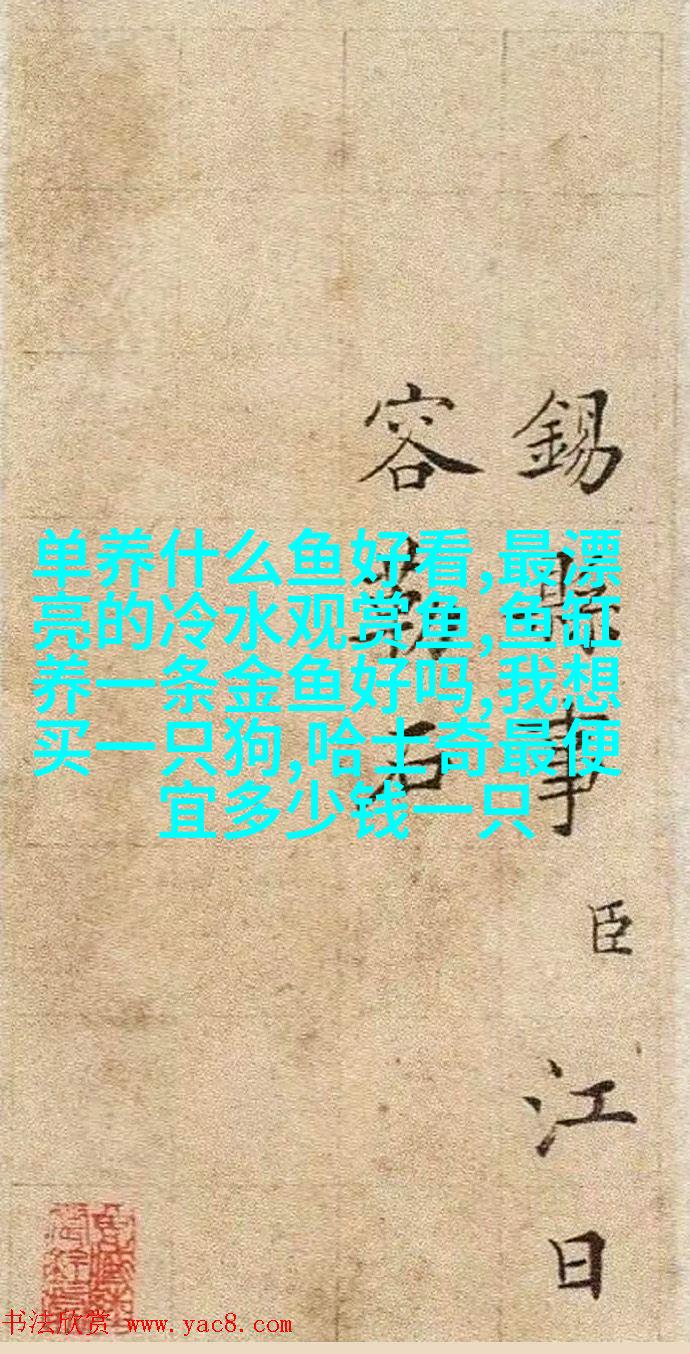 单养什么鱼好看,最漂
亮的冷水观赏鱼,鱼缸
养一条金鱼好吗,我想
买一只狗,哈士奇最便
宜多少钱一只
錫縣事臣江日
容蘄石
书法欣赏 www.yac8.com